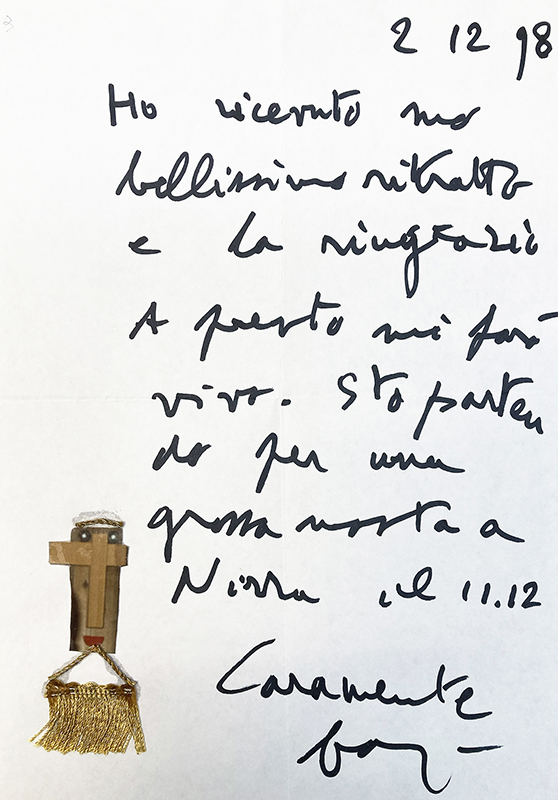 2 12 98
Ho ricevuto suo
bellissimo ritratto
e la ringrazio
A presto mi farò
vivo. Sto parten
do per una
grossa mostra a
Nizza il 11.12
Caramente